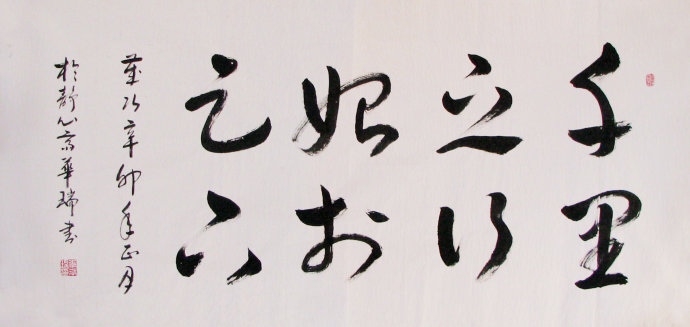 千里
之行
始於
足下
歲次辛卯年正月
於静心華瑞書